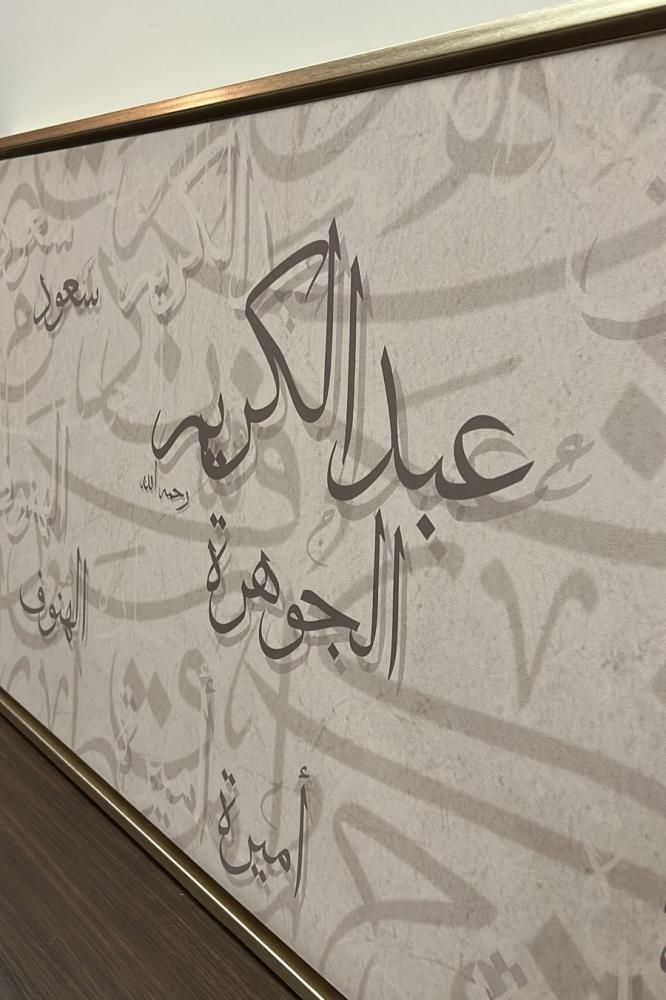 سعود
عبدالكريم
رحمه الله
الجوهرة
الهنوف
أميرة